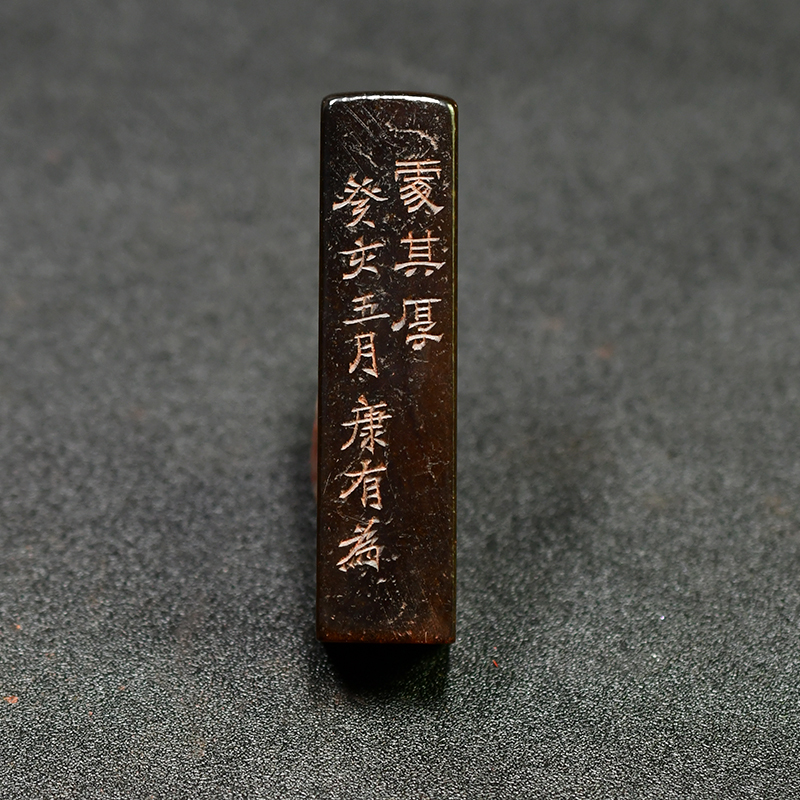 處其厚
癸亥五月康有為